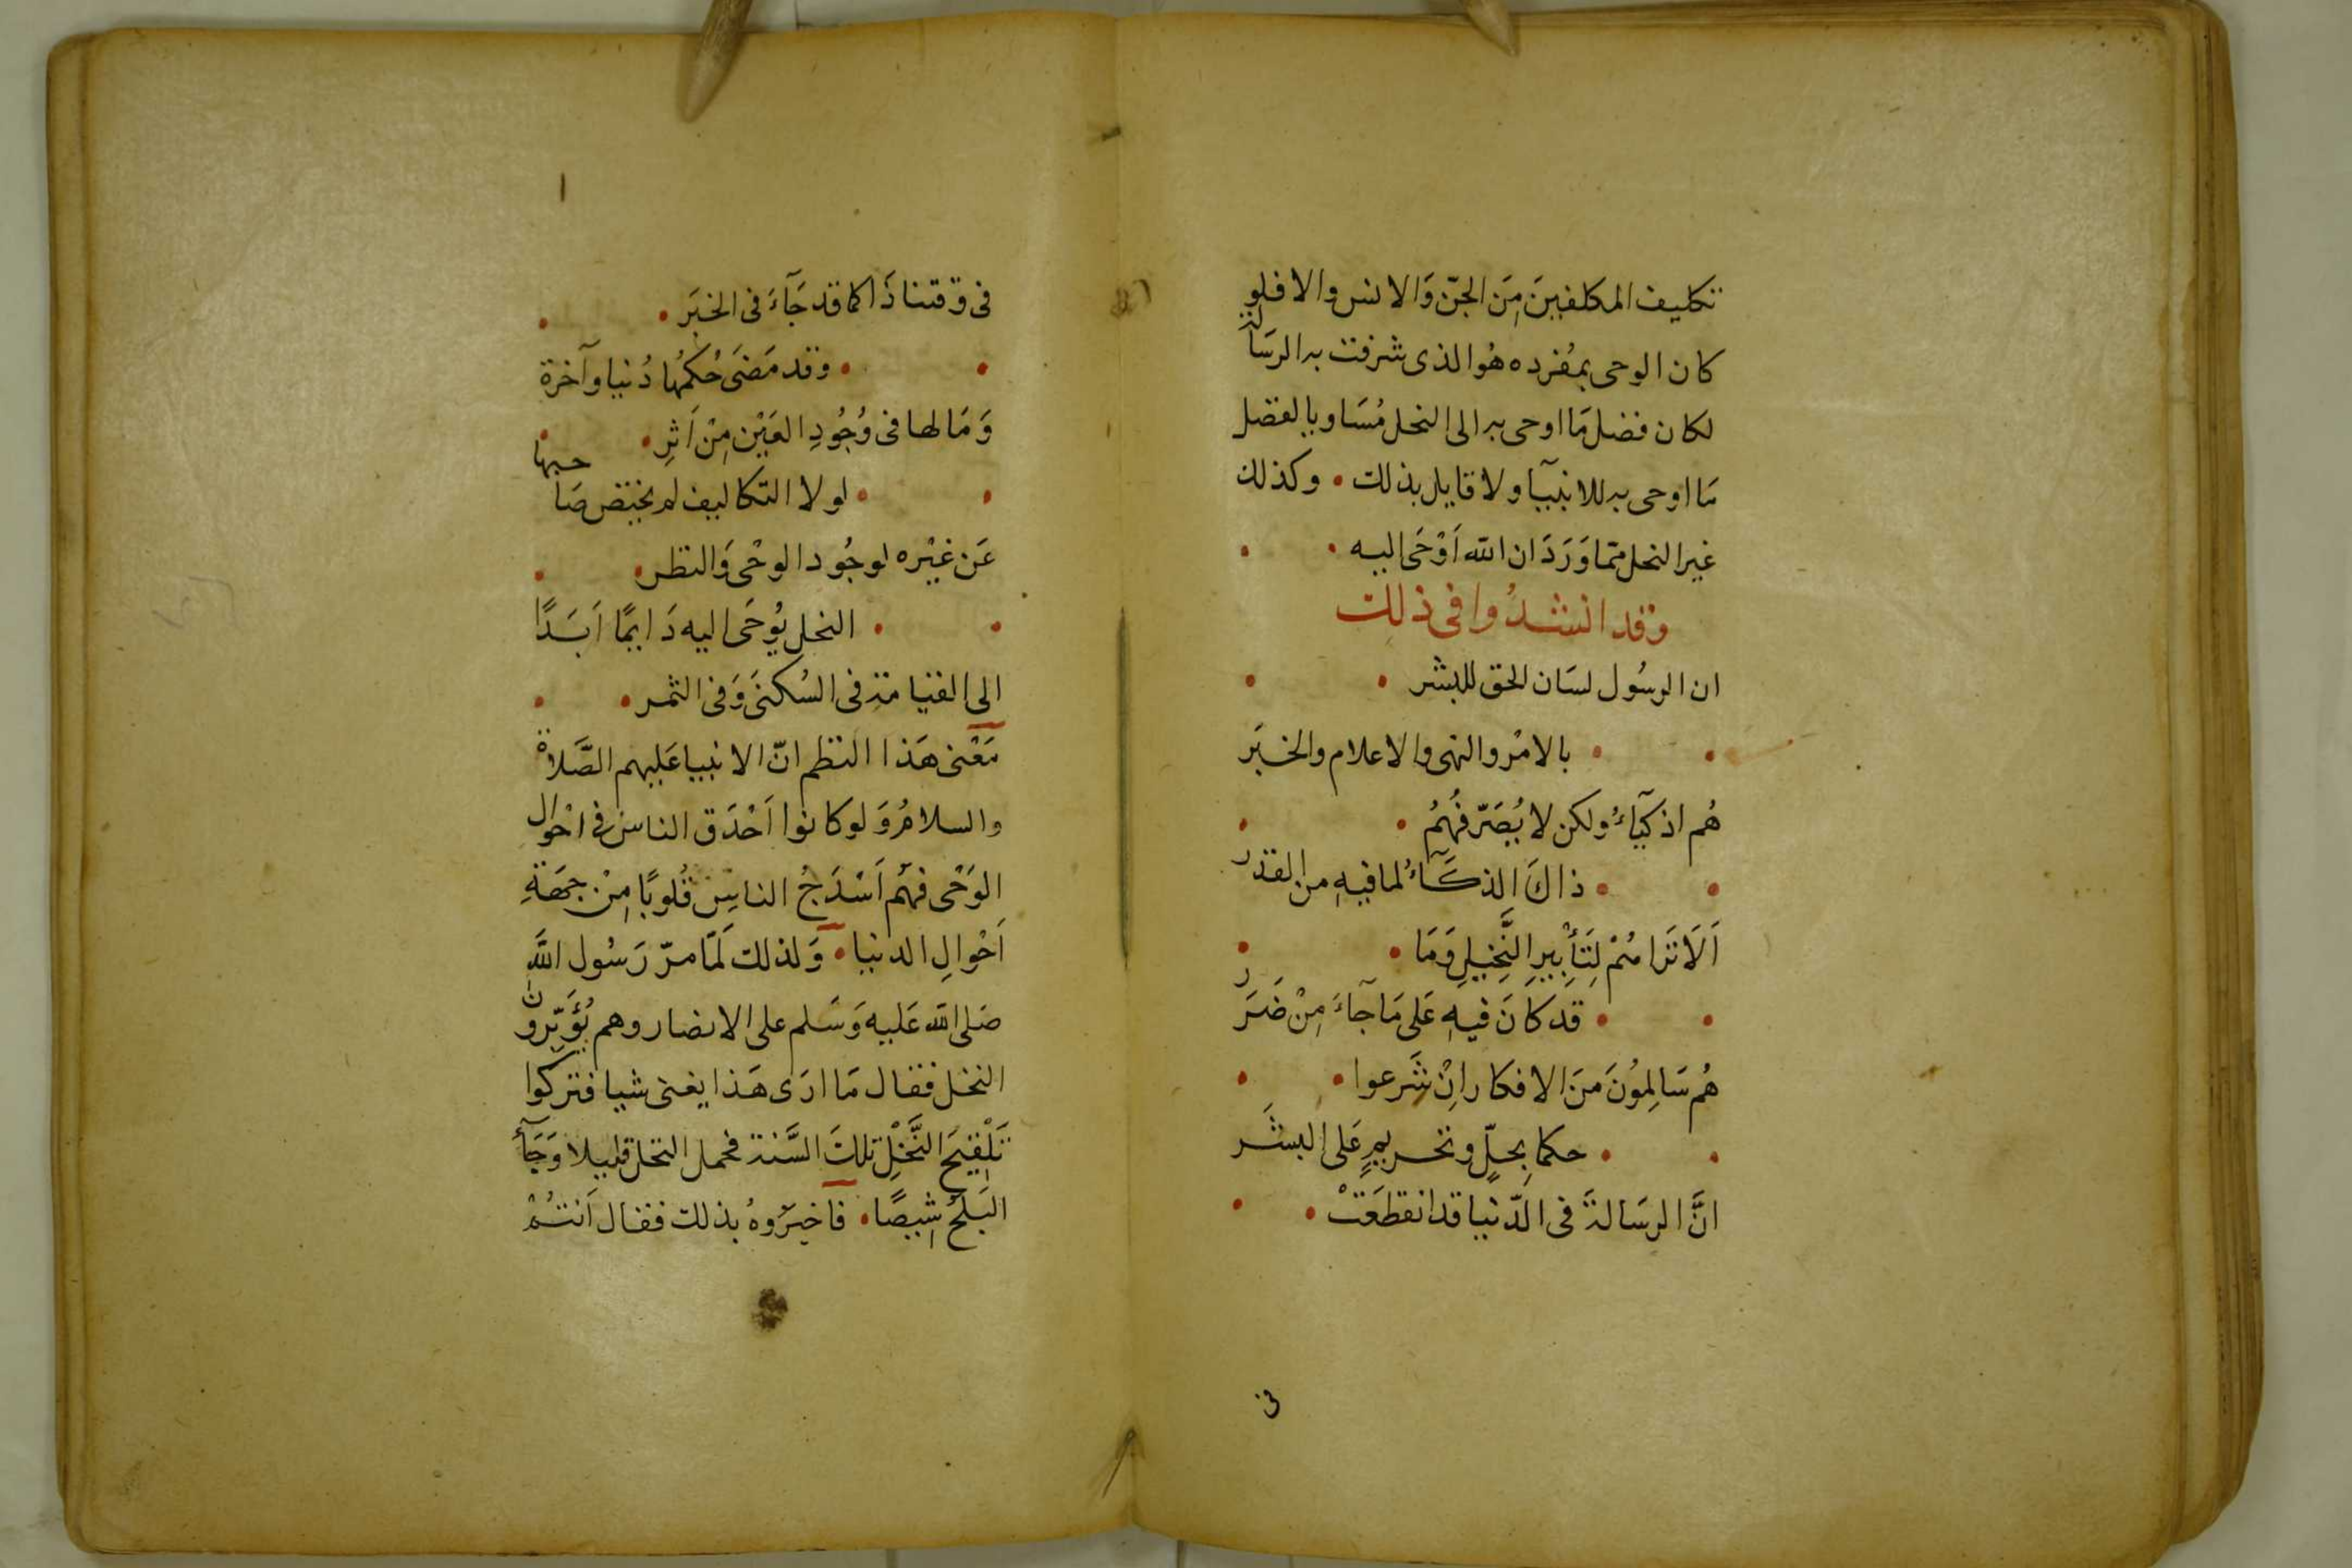 تكليف المكلفينَ مِنَ الجنّ وَالانس والا فلو
كان الوحى بمُفرده هُو الذى شرفت به الرسَالة
لكان فضل مَا اوحى به الى النحل مُسَاويا لفضل
مَا اوحى به للانبيآ ولا قايل بذلك • وكذلك
غير النحل ممّا وَرَدَ ان الله اَوْحَى اليه •
وقد انشدُوا فى ذلِك
ان الرسُول لسَان الحق للبشر •
• بالامْر والنهى والاعلام والخبَر
هُم اذكيآءُ ولكن لا يُصَرّفُهُمُ •
• ذاكَ الذكآءُ لما فيهِ من القدر
اَلَا تَرَاهُمْ لِتَأْبِيرِ النَّخِيلِ وَمَا •
• قد كانَ فيهِ عَلى مَا جآءَ مِنْ ضَرَر
هُم سَالِمُونَ منَ الافكار اِنْ شَرعوا •
• حكما بِحلٍّ وتحريمٍ عَلى البشَر
انَّ الرسَالةَ فى الدّنيا قد انقطَعَتْ •
فى
١
فى وقتنا ذَا كما قد جَآءَ فى الخبَر •
• وقد مَضَى حُكمُها دُنيا وآخرة
وَمَا لها فى وُجُودِ العَيْن مِنْ اَثرِ •
• لولا التكاليف لم يختص صَاحبها
عَن غيْره لوجُود الوحْى وَالنظر •
• النحل يُوحَى اليه دَايمًا اَبَدًا
الى القيامة فى السُكنَى وَفى الثمر •
مَعْنى هَذا النظم انّ الانبيا عَليهم الصَّلاة
والسلامُ وَلو كانوا اَحْذَق الناس فى احْوال
الوَحْى فهُم اَسْدَجُ الناسِ قُلوبًا مِنْ جهَةِ
اَحْوالِ الدنيا • وَلذلك لَمّا مرّ رَسُول اللَّه
صَلى الله عَليه وَسَلم على الانصار وهم يُؤَبِّرُونَ
النخل فقال مَا ارَى هَذا يغنى شيا فتركوا
تَلْقِيحَ النَّخْلِ تلكَ السَّنة فحمل النخل قليلا وَجَآءَ
البَلَحُ شِيصًا • فاخبَرُوهُ بذلك فقال اَنتُمْ